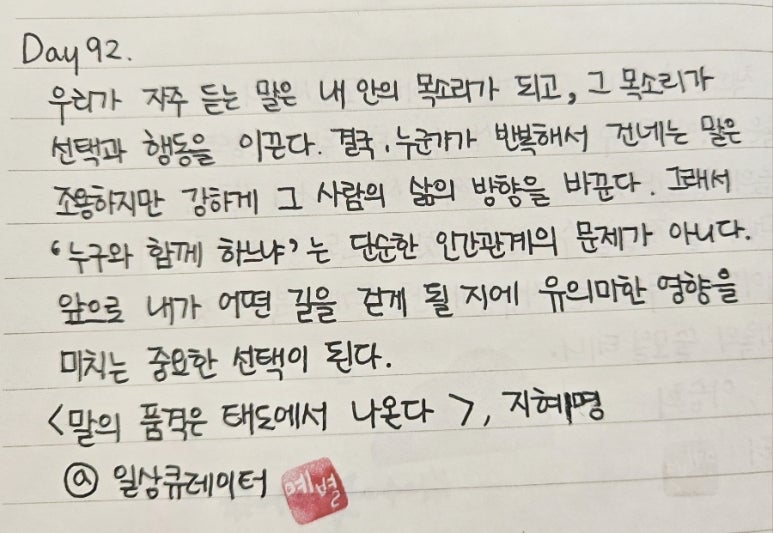 Day 92.
우리가 자주 듣는 말은 내 안의 목소리가 되고, 그 목소리가
선택과 행동을 이끈다. 결국, 누군가가 반복해서 건네는 말은
조용하지만 강하게 그 사람의 삶의 방향을 바꾼다. 그래서
'누구와 함께 하느냐'는 단순한 인간관계의 문제가 아니다.
앞으로 내가 어떤 길을 걷게 될 지에 유의미한 영향을
미치는 중요한 선택이 된다.
<말의 품격은 태도에서 나온다>, 지혜명
@ 일상큐레이터 예별